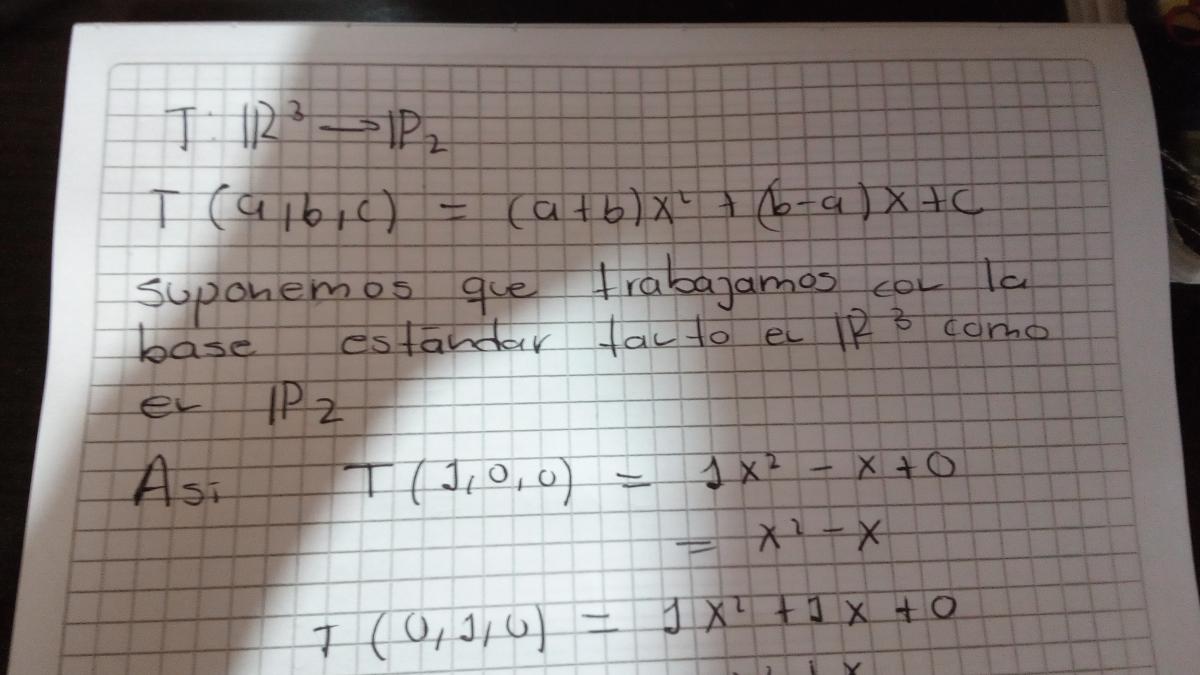 T: ℝ³ → ℙ₂
T (a,b,c) = (a+b)x² + (b-a)x+c
suponemos que trabajamos con la
base estándar tacto en ℝ³ como
en ℙ₂
Asi T(1,0,0) = 1x² - x+0
= x² - x
T (0,1,0) = 1x² + 1x + 0